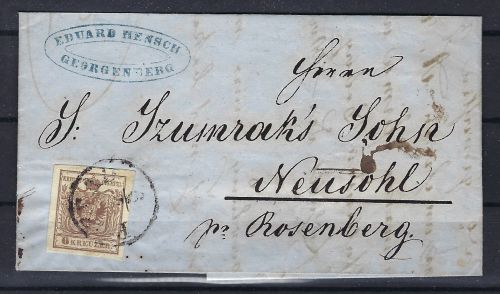 EDUARD HENSCH
GEORGENBERG
Herrn
S: Szumrak's Sohn
Neusohl
pr Rosenberg.
6 KREUZER